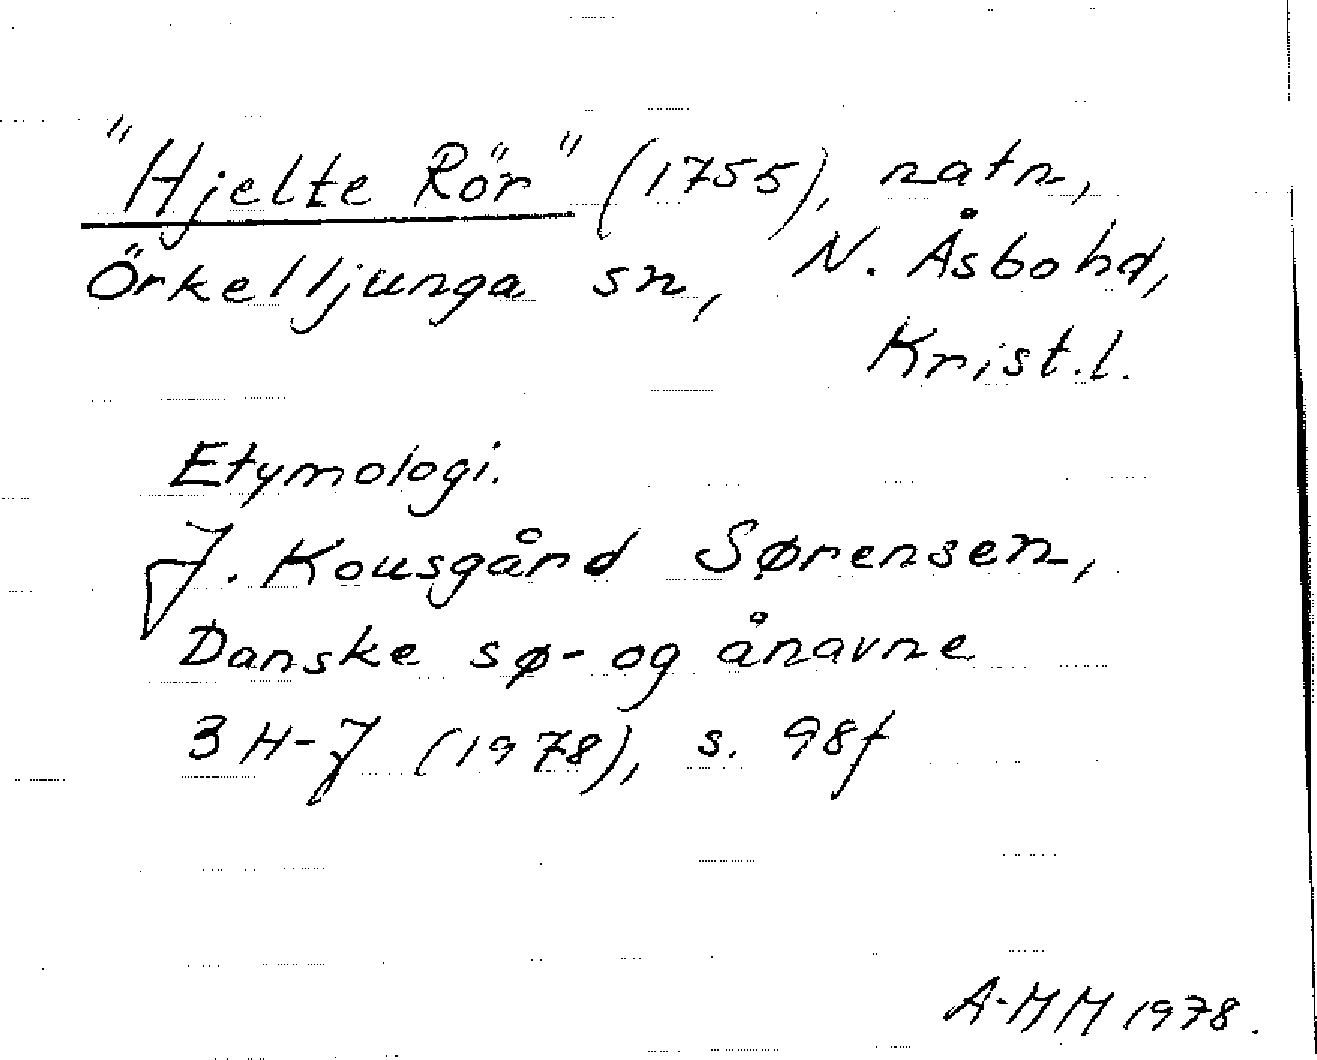 "Hjelte Rör" (1755), natn,
Örkelljunga sn, N. Åsbohd,
Krist.l.
Etymologi.
J. Kousgård Sørensen,
Danske sø- og ånavne
3 H-J (1978), s. 98f
A-MM 1978.